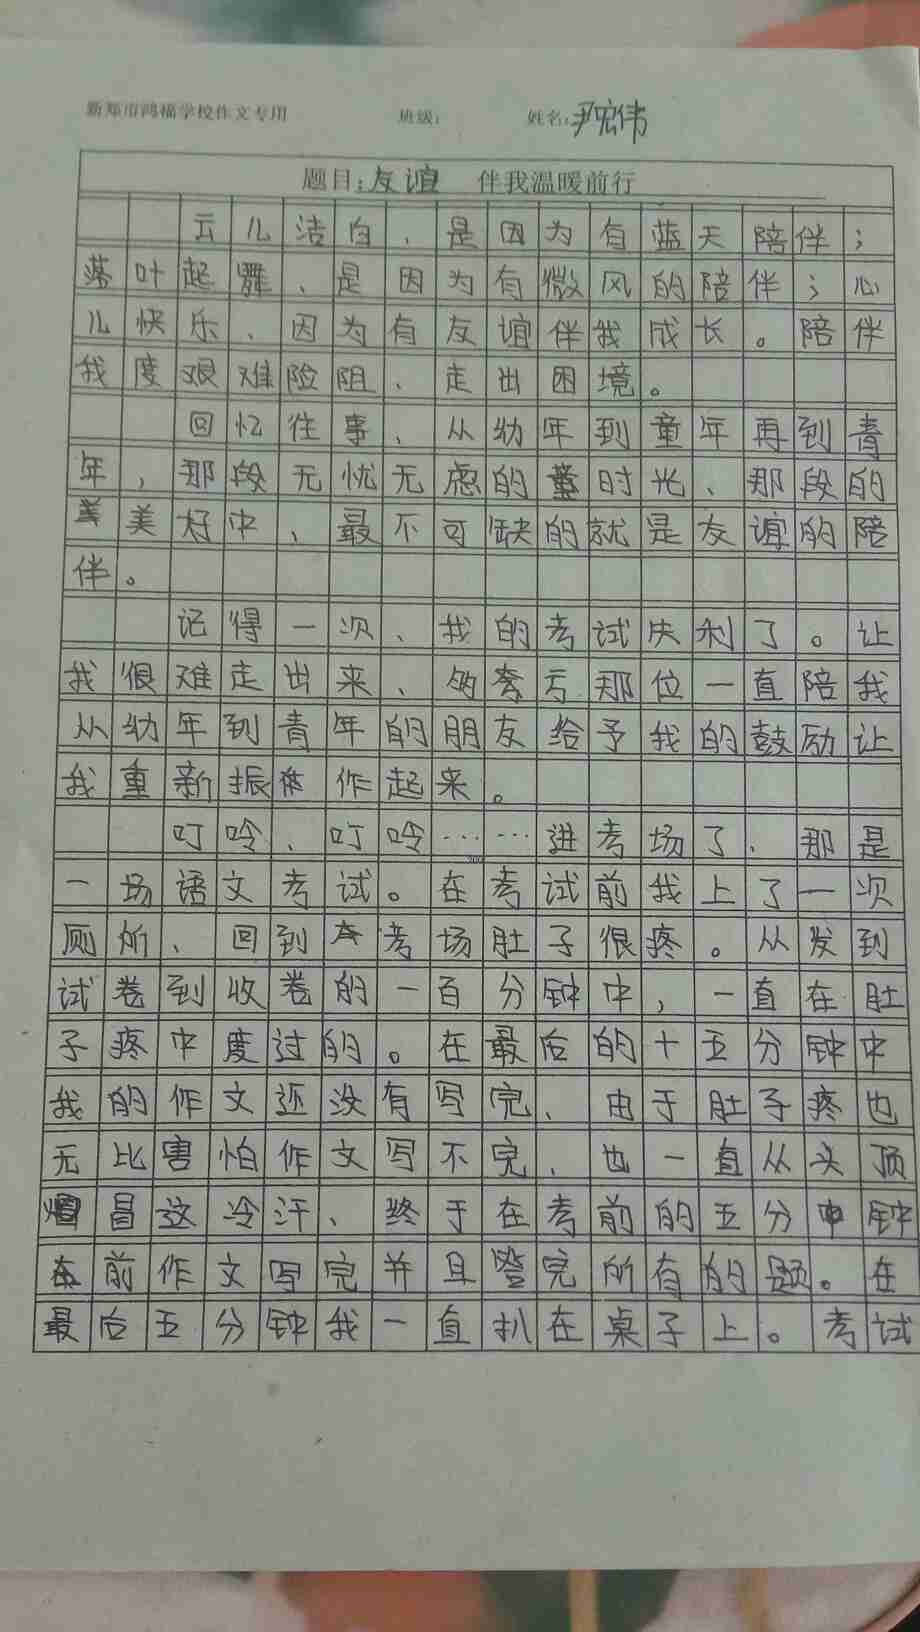 新郑市鸿福学校作文专用 班级： 姓名：尹宏伟
题目：友谊 伴我温暖前行
云儿洁白、是因为有蓝天陪伴；
落叶起舞、是因为有微风的陪伴；心
儿快乐、因为有友谊伴我成长。陪伴
我度艰难险阻、走出困境。
回忆往事、从幼年到童年再到青
年，那段无忧无虑的时光、那段的
美好中、最不可缺的就是友谊的陪
伴。
记得一次、我的考试失利了。让
我很难走出来、多亏那位一直陪我
从幼年到青年的朋友给予我的鼓励让
我重新振作起来。
叮呤、叮呤……进考场了、那是
一场语文考试。在考试前我上了一次
厕所、回到考场肚子很疼。从发到
试卷到收卷的一百分钟中，一直在肚
子疼中度过的。在最后的十五分钟中
我的作文还没有写完、由于肚子疼也
无比害怕作文写不完、也一直从头顶
冒这冷汗、终于在考前的五分钟
前作文写完并且登完所有的题。在
最后五分钟我一直扒在桌子上。考试